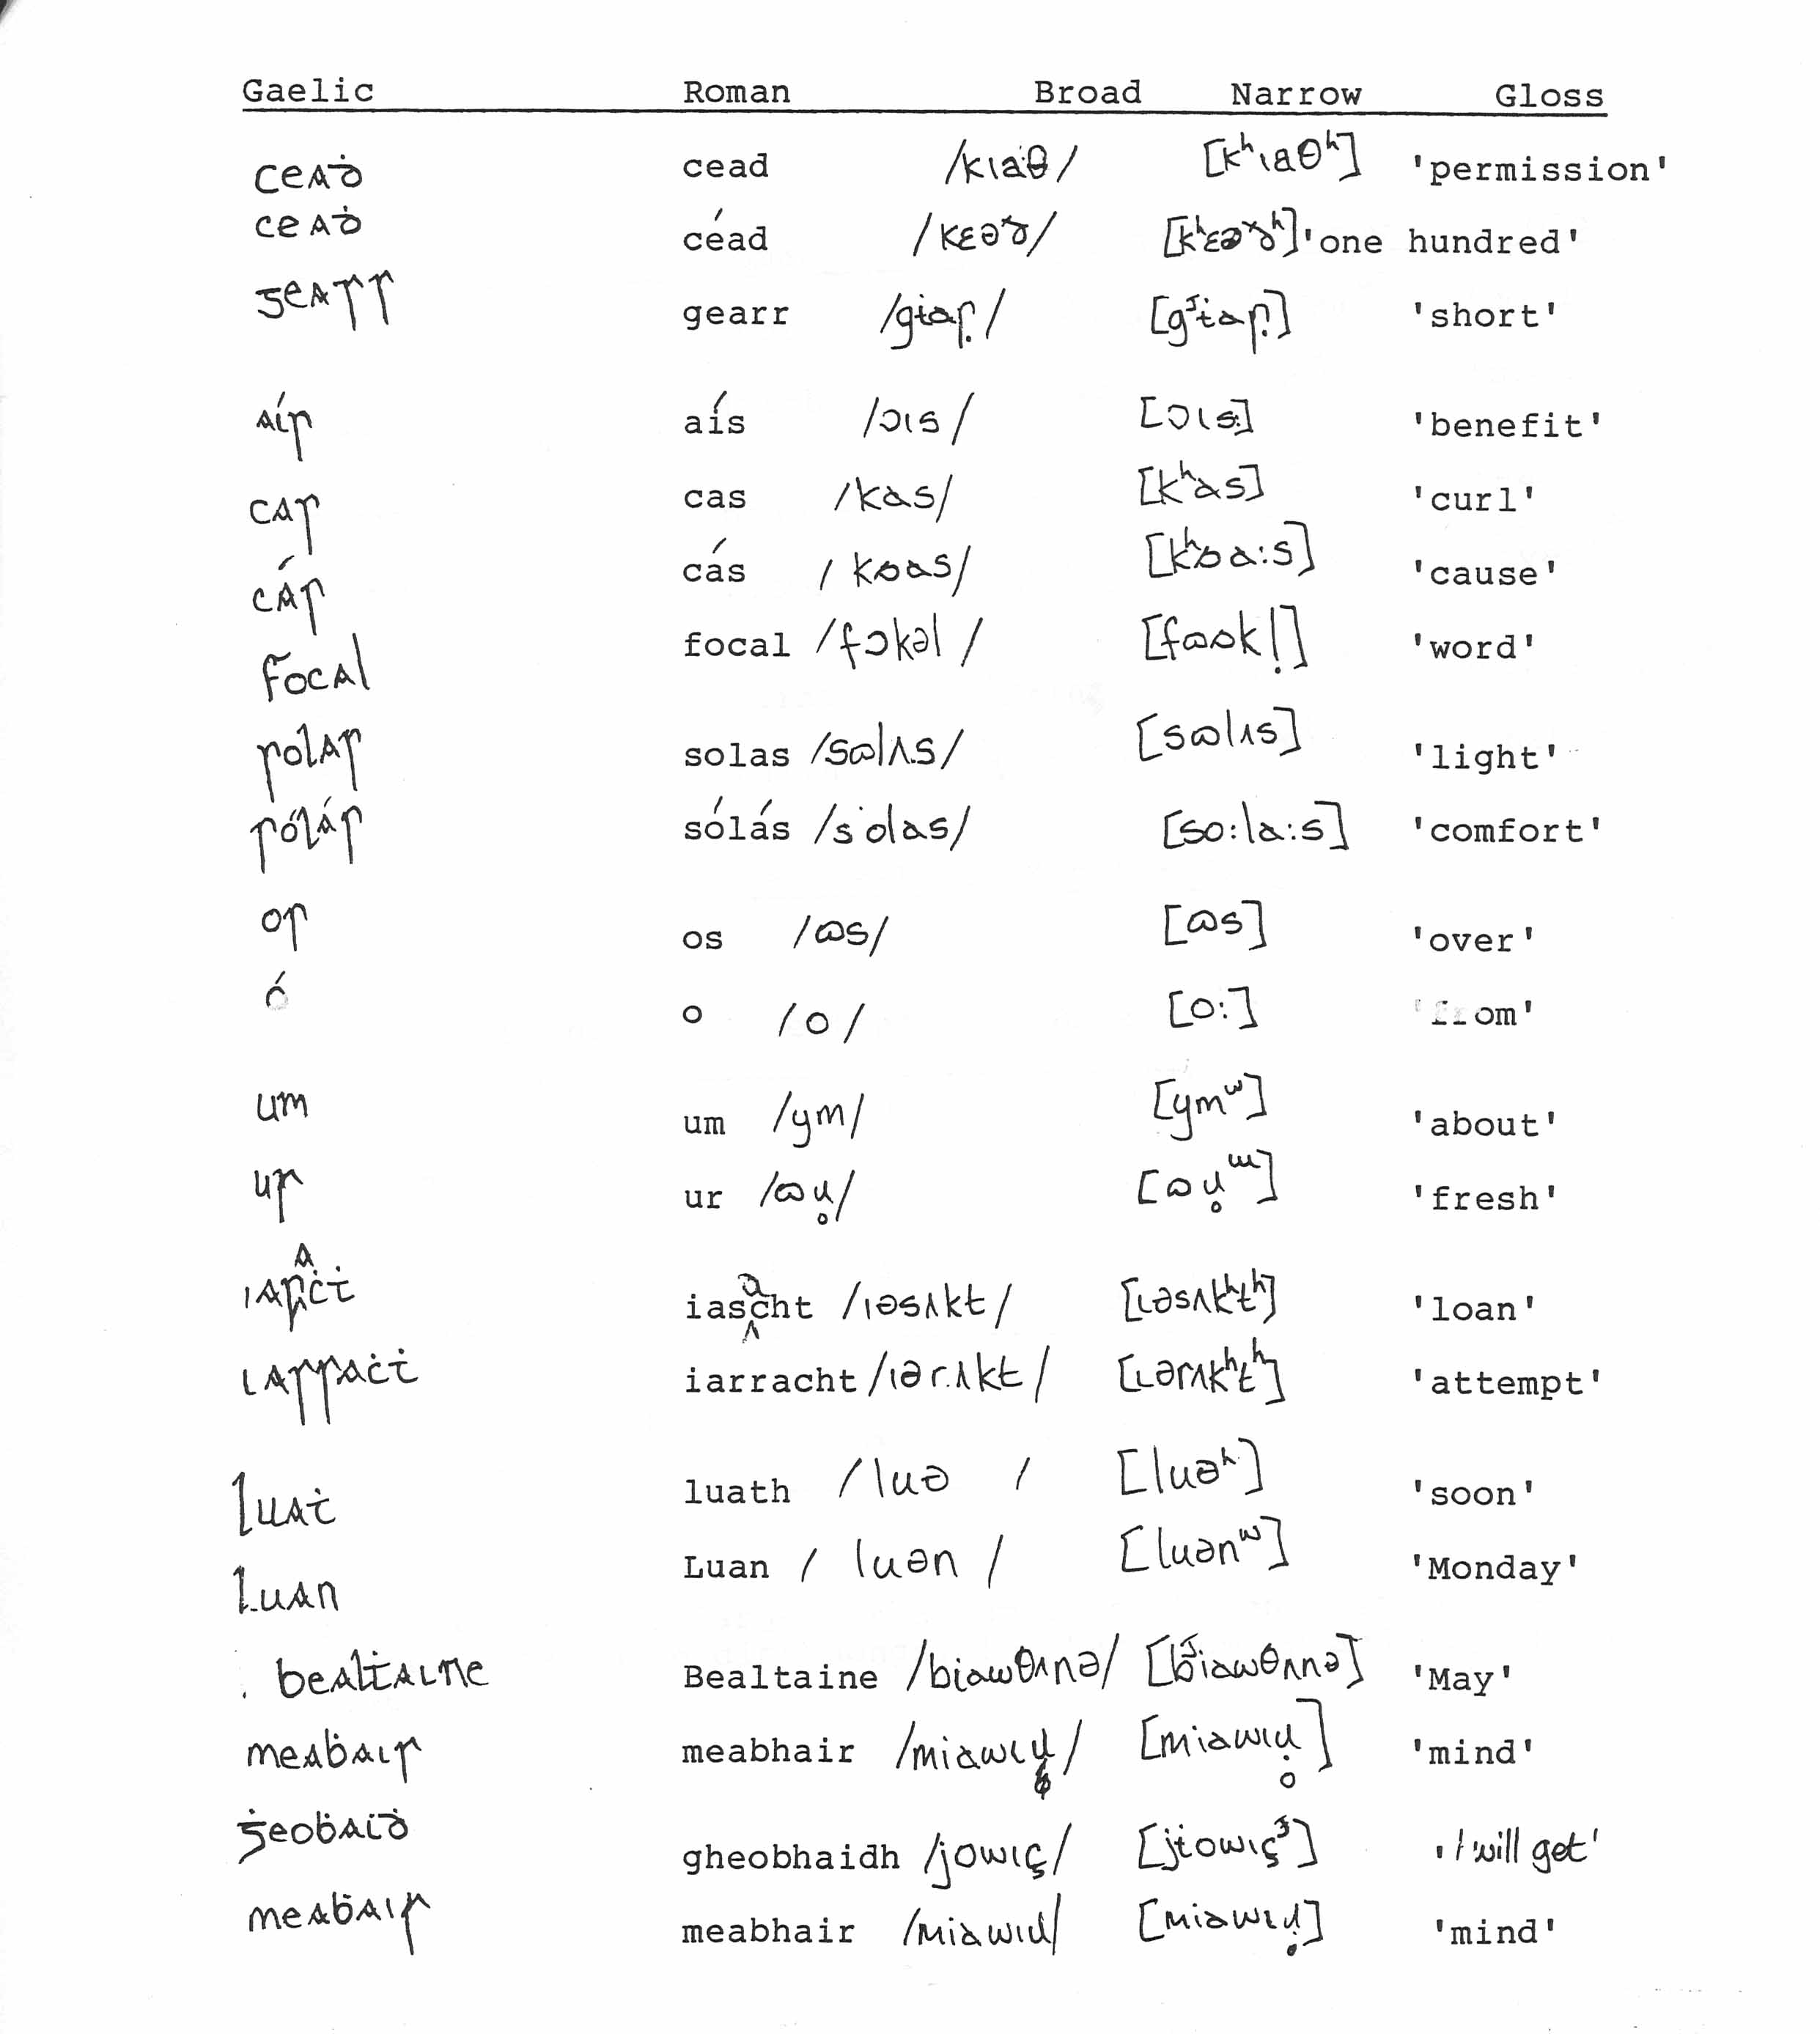 Gaelic Roman Broad Narrow Gloss
ceaḋ cead /kɩaθ/ [kʰɩaθʰ] 'permission'
ceaḋ céad /kɛəɤ/ [kʰɛəɤʰ] 'one hundred'
ᵹeaꞃꞃ gearr 'short'
aíꞅ aís /ɔɩs/ [ɔɩs] 'benefit'
caꞅ cas /kas/ [kʰas] 'curl'
cáꞅ cás /kɒas/ [kʰɒa:s] 'cause'
focal focal /fɔkəl/ [fɷɒkl̩] 'word'
ꞅolaꞅ solas /sɷlʌs/ [sɷlʌs] 'light'
ꞅóláꞅ sólás /solas/ [so:la:s] 'comfort'
oꞅ os /ɷs/ [ɷs] 'over'
ó o /o/ [o:] 'from'
um um /ym/ [ymʷ] 'about'
uꞃ ur 'fresh'
ıaꞅaċṫ iasacht /ɩəsʌkt/ [ɩəsʌkʰtʰ] 'loan'
ıaꞃꞃaċṫ iarracht /ɩərʌkt/ [ɩərʌkʰtʰ] 'attempt'
luaṫ luath /luə / [luəʰ] 'soon'
Luan Luan / luən / [luənʷ] 'Monday'
bealṫaıne Bealtaine /biawθʌnə/ [bʲiawθʌnə] 'May'
meaḃaıꞃ meabhair 'mind'
ᵹ̇eoḃaıḋ gheobhaidh /jowɩç/ 'I will get'
meaḃaıꞃ meabhair 'mind'